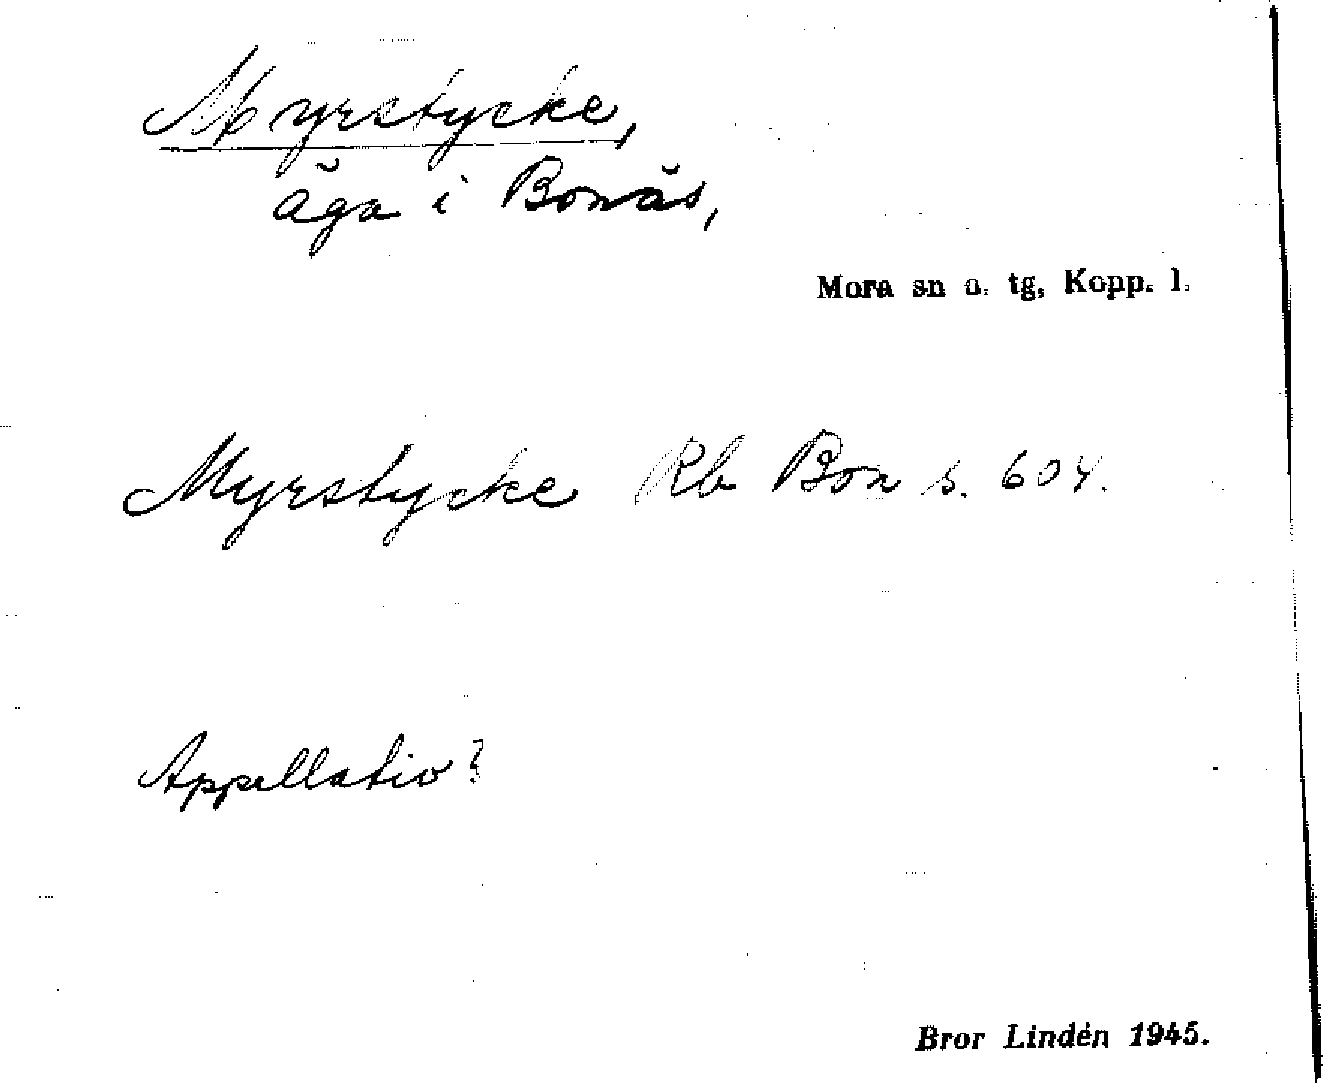 Myrstycke,
äga i Bonäs,
Mora sn o. tg, Kopp. l.
Myrstycke Rb Bon s. 604.
Appellativ?
Bror Lindén 1945.